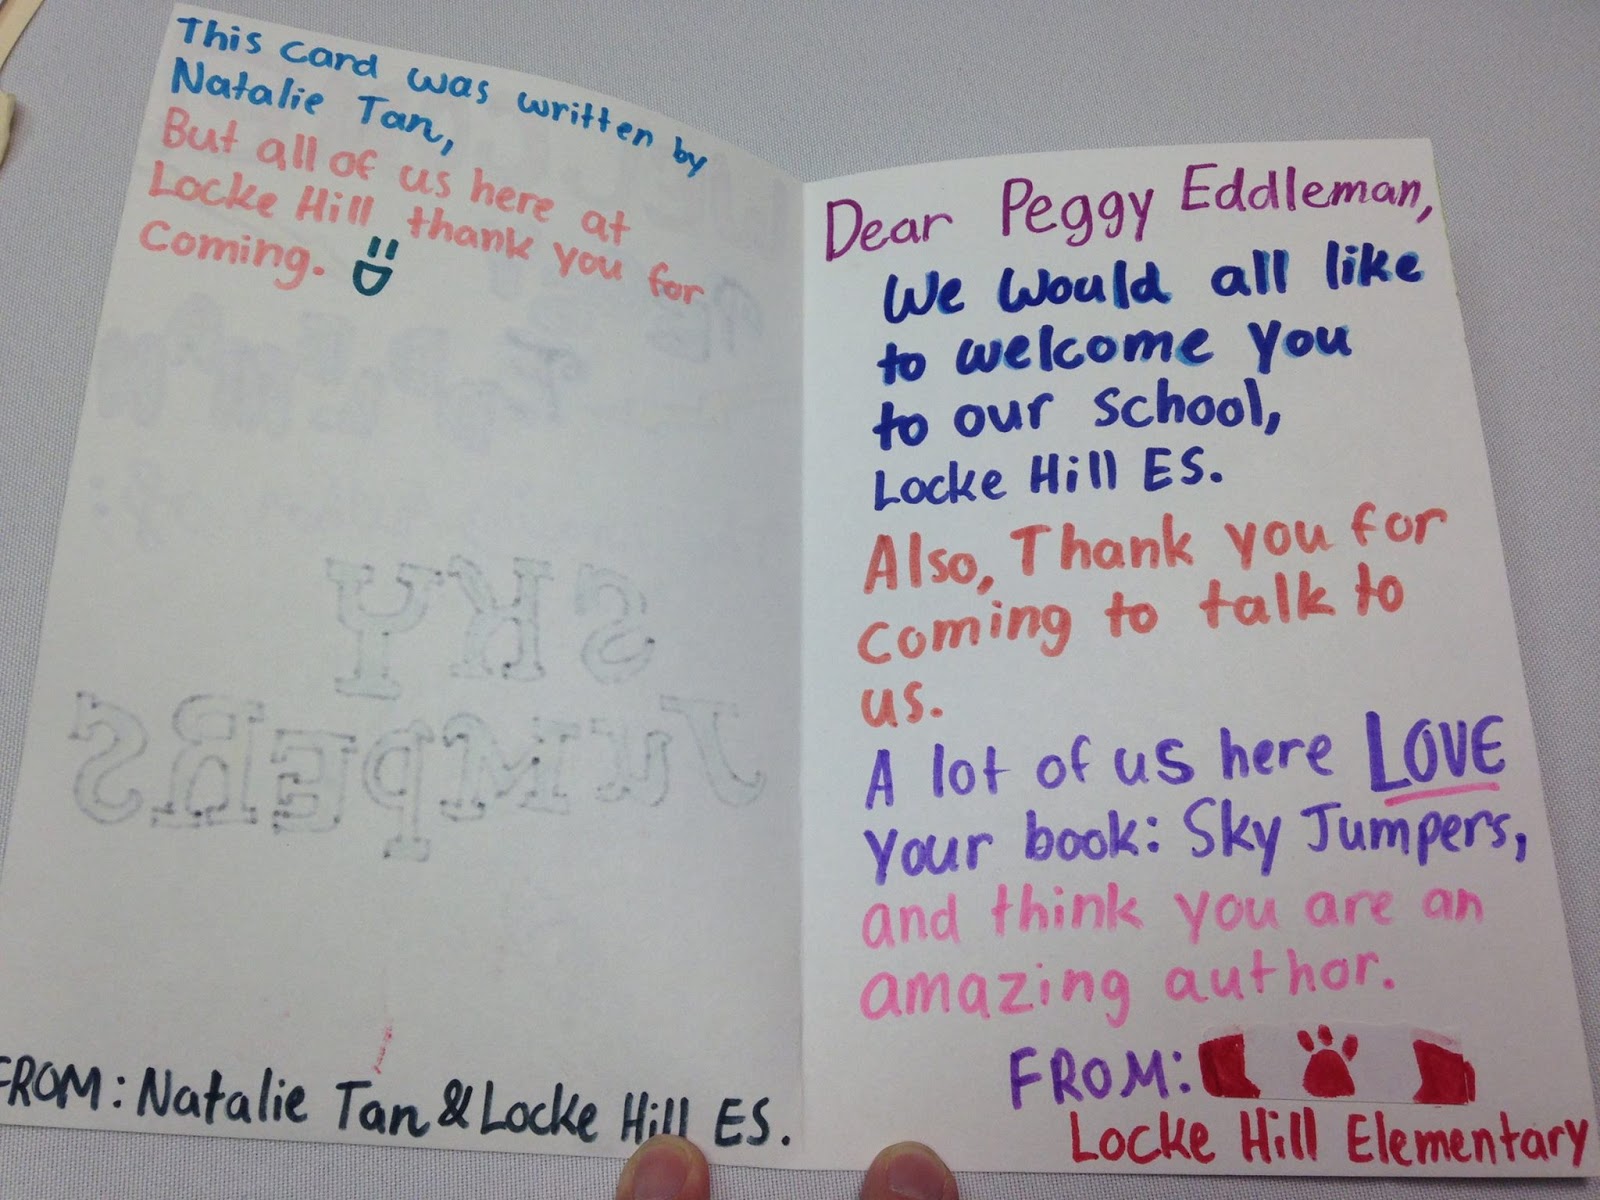 This card was written by
Natalie Tan,
But all of us here at
Locke Hill thank you for
coming.
FROM: Natalie Tan & Locke Hill ES.
SKY
JUMPERS
Dear Peggy Eddleman,
We would all like
to welcome you
to our school,
Locke Hill ES.
Also, Thank you for
coming to talk to
us.
A lot of us here LOVE
your book: Sky Jumpers,
and think you are an
amazing author.
FROM:
Locke Hill Elementary